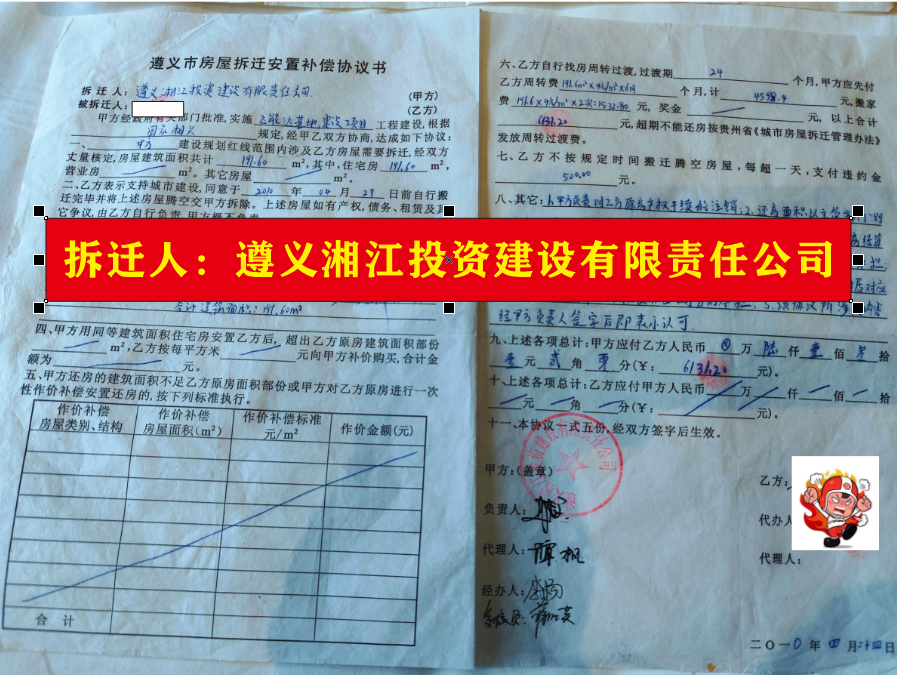 遵义市房屋拆迁安置补偿协议书
拆迁人：遵义湘江投资建设有限责任公司 （甲方）
被拆迁人： （乙方）
甲方经政府有关部门批准，实施 建设项目 工程建设，根据
国家相关 规定，经甲乙双方协商，达成如下协议：
一、 甲方 建设规划红线范围内涉及乙方房屋需要拆迁，经双方
丈量核定，房屋建筑面积共计 191.60 m²，其中，住宅房 191.60 m²，
营业房 m²。其它房屋 m²。
二、乙方表示支持城市建设，同意于 2010 年 04 月 29 日前自行搬
迁完毕并将上述房屋腾空交甲方拆除。上述房屋如有产权，债务、租赁及其
它争议，由乙方自行负责，甲方概不负责
拆迁人：遵义湘江投资建设有限责任公司
合计建筑面积：191.60m²
四、甲方用同等建筑面积住宅房安置乙方后，超出乙方原房建筑面积部份
m²，乙方按每平方米 元向甲方补价购买，合计金
额为 元。
五、甲方还房的建筑面积不足乙方原房面积部份或甲方对乙方原房进行一次
性作价补偿安置还房的，按下列标准执行。
作价补偿 房屋类别、结构
作价补偿 房屋面积（m²）
作价补偿标准 元/m²
作价金额（元）
合 计
六、乙方自行找房周转过渡，过渡期 24 个月，甲方应先付
乙方周转费 191.6m²×4元/m²×6月 个月，计 4598.4 元，搬家
费 191.6×4元/m²×2次=1532.80 元， 奖金 元， 以上合计
6131.20 元，超期不能还房按贵州省《城市房屋拆迁管理办法》
发放周转过渡费。
七、乙方不按规定时间搬迁腾空房屋，每超一天，支付违约金
500.00 元。
八、其它：1.甲方负责对乙方原房产权手续的注销；2.还房面积以
经甲方负责人签字后即表示认可.
九、上述各项总计：甲方应付乙方人民币 万 陆 仟 壹 佰 叁 拾
壹 元 贰 角 零 分（￥： 6131.20 元）。
十、上述各项总计：乙方应付甲方人民币 万 仟 佰 拾
元 角 分（￥： 元）。
十一、本协议一式五份，经双方签字后生效。
甲方：（盖章）
乙方：
负责人：
代办人
代理人：
代理人：
经办人：
二〇一0 年 四 月 二十四 日